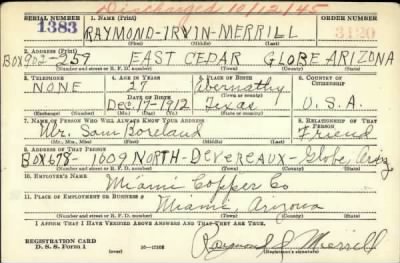 Discharged 10/12/45
SERIAL NUMBER 1. NAME (Print) ORDER NUMBER
1383 RAYMOND-IRVIN-MERRILL 3120
(First) (Middle) (Last)
2. ADDRESS (Print)
BOX902-259 EAST CEDAR GLOBE ARIZONA
(Number and street or R. F. D. number) (Town) (County) (State)
3. TELEPHONE 4. AGE IN YEARS 5. PLACE OF BIRTH 6. COUNTRY OF CITIZENSHIP
NONE 27 Abernathy
DATE OF BIRTH (Town or county)
Dec. 17-1912 Texas U.S.A.
(Mo.) (Day) (Yr.) (State or country)
7. NAME OF PERSON WHO WILL ALWAYS KNOW YOUR ADDRESS 8. RELATIONSHIP OF THAT PERSON
Mr. Sam Boreland Friend
(Mr., Mrs., Miss) (First) (Middle) (Last)
9. ADDRESS OF THAT PERSON
BOX678-1609 NORTH-DEVEREAUX-Globe Ariz
(Number and street or R. F. D. number) (Town) (County) (State)
10. EMPLOYER'S NAME
Miami Copper Co
11. PLACE OF EMPLOYMENT OR BUSINESS
Miami, Arizona
(Number and street or R. F. D. number) (Town) (County) (State)
I AFFIRM THAT I HAVE VERIFIED ABOVE ANSWERS AND THAT THEY ARE TRUE.
REGISTRATION CARD
D. S. S. Form 1
Raymond I Merrill
(Registrant's signature)